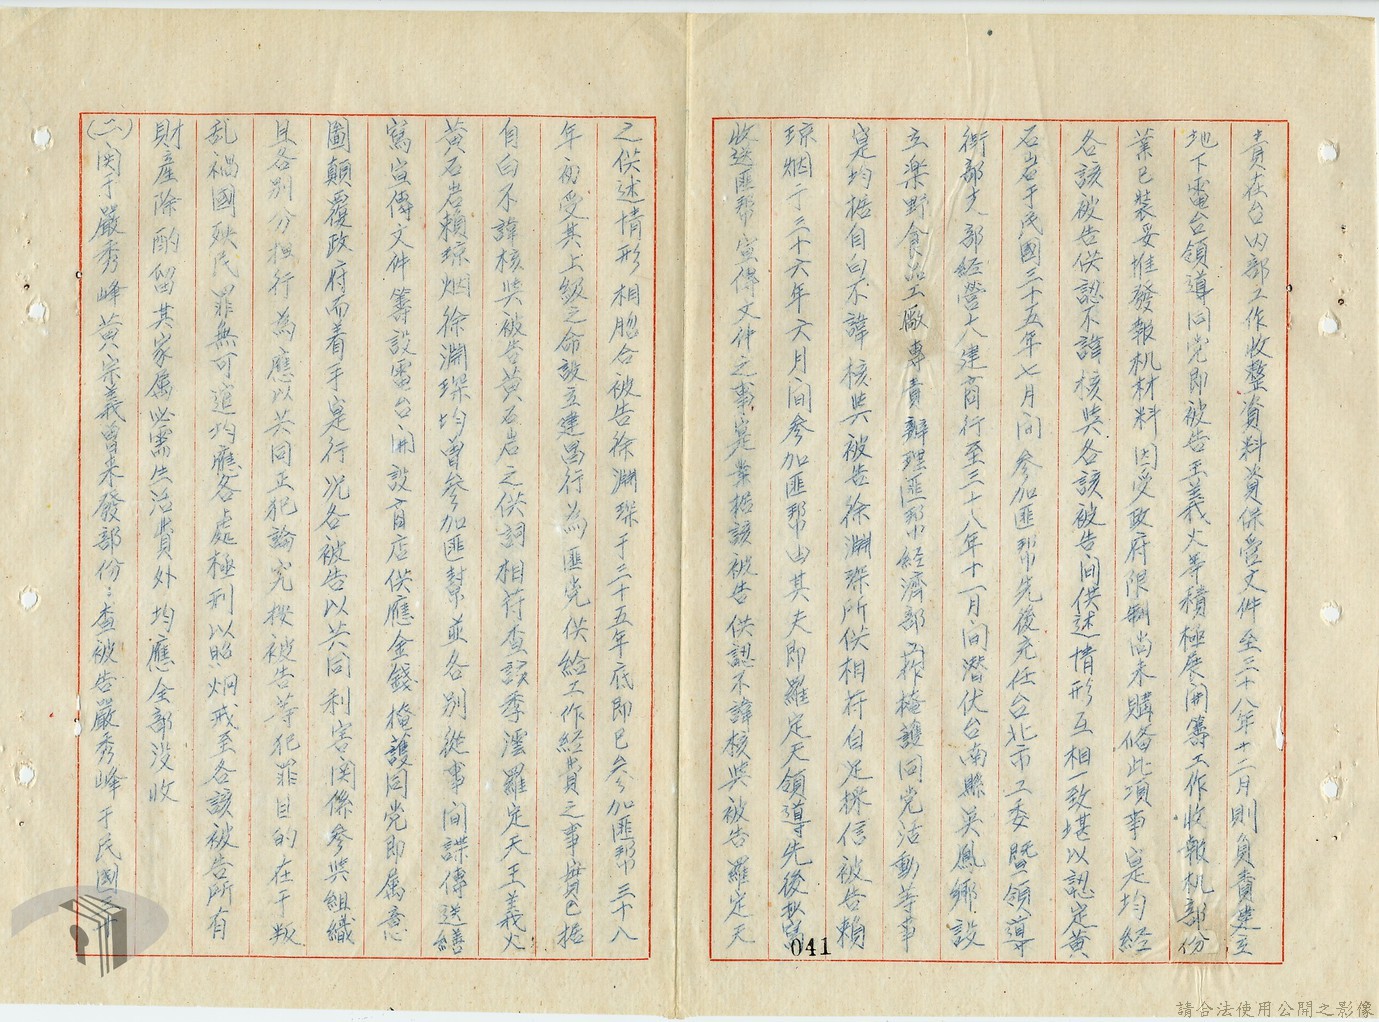 責在台內部工作收整資料資保管文件至三十八年十二月則負責建立
地下電台領導同党即被告王義火等積極展開籌工作收報机部份
業已裝妥惟發報机材料因受政府限制尚未購俻此項事寔均経
各該被告供認不諱核與各該被告间供述情形互相一致堪以認定黄
石岩于民國三十五年七月间参加匪帮先後充任台北市工委暨領導
街部支部経營大建商行至三十八年十一月间潛伏台南縣英鳳鄉設
立楽野食品工廠專責辦理匪帮経濟部工作掩護同党活動等事
寔均据自白不諱核與被告徐淵琛所供相符自足採信被告賴
琼烟于三十六年六月间参加匪帮由其夫即羅定天領導先後抄寫
收送匪帮宣傳文件之事寔業据該被告供認不諱核與被告羅定天
之供述情形相脗合被告徐淵琛于三十五年底即已参加匪帮三十八
年初受其上級之命設立建昌行為匪党供給工作経費之事實已据
自白不諱核與被告黄石岩之供詞相符查該季澐羅定天王義火
黄石岩賴琼烟徐淵琛均曽参加匪幫並各別從事间諜傳送繕
寫宣傳文件籌設電台開設商店供應金錢掩護同党即属意
圖顛覆政府而着手寔行况各被告以共同利害関係參與組織
且各別分担行為應以共同正犯論究按被告等犯罪目的在于叛
乱禍國殃民罪無可逭均應各處極刑以昭炯戒至各該被告所有
財產除酌留其家属必需生活費外均應全部没收
(二)関于嚴秀峰黄宗義曽來發部份：查被告嚴秀峰于民國三十
041
請合法使用公開之影像